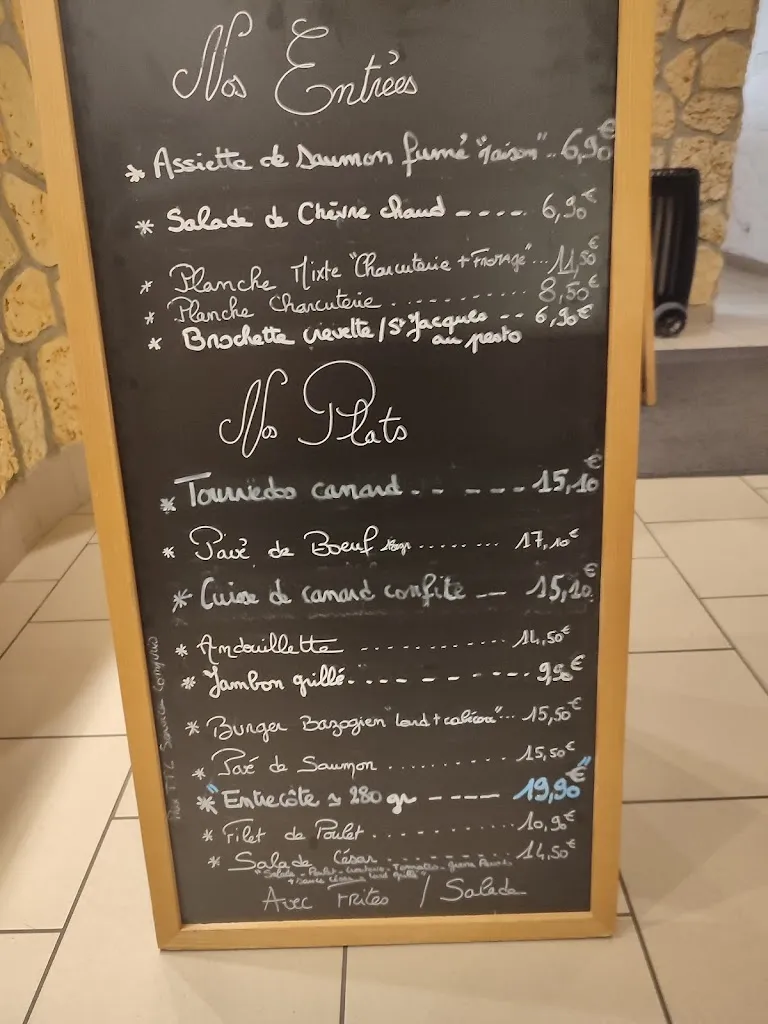 Nos Entrées
* Assiette de Saumon fumé "Maison".. 6,90€
* Salade de Chèvre chaud ---- 6,90€
* Planche Mixte "Charcuterie + Fromage"... 11,50€
* Planche Charcuterie .......... 8,50€
* Brochette crevette / St Jacques -- 6,90€
au pesto
Nos Plats
* Tournedos canard.. --- 15,10€
* Pavé de Boeuf ........ 17,10€
* Cuisse de canard confite -- 15,10€
* Andouillette ............ 14,50€
* Jambon grillé.... ----- 9,90€
* Burger Bazogien "lard + cabécou"... 15,50€
* Pavé de Saumon ............ 15,50€
"* Entrecôte ≃ 280 gr ---- 19,90€"
* Filet de Poulet ............ 10,90€
* Salade César ......... 14,50€
"Salade - Poulet - Croutons - Tomates - grana
+ sauce césar + lard grillé"
Avec Frites / Salade
Prix TTC Service Compris